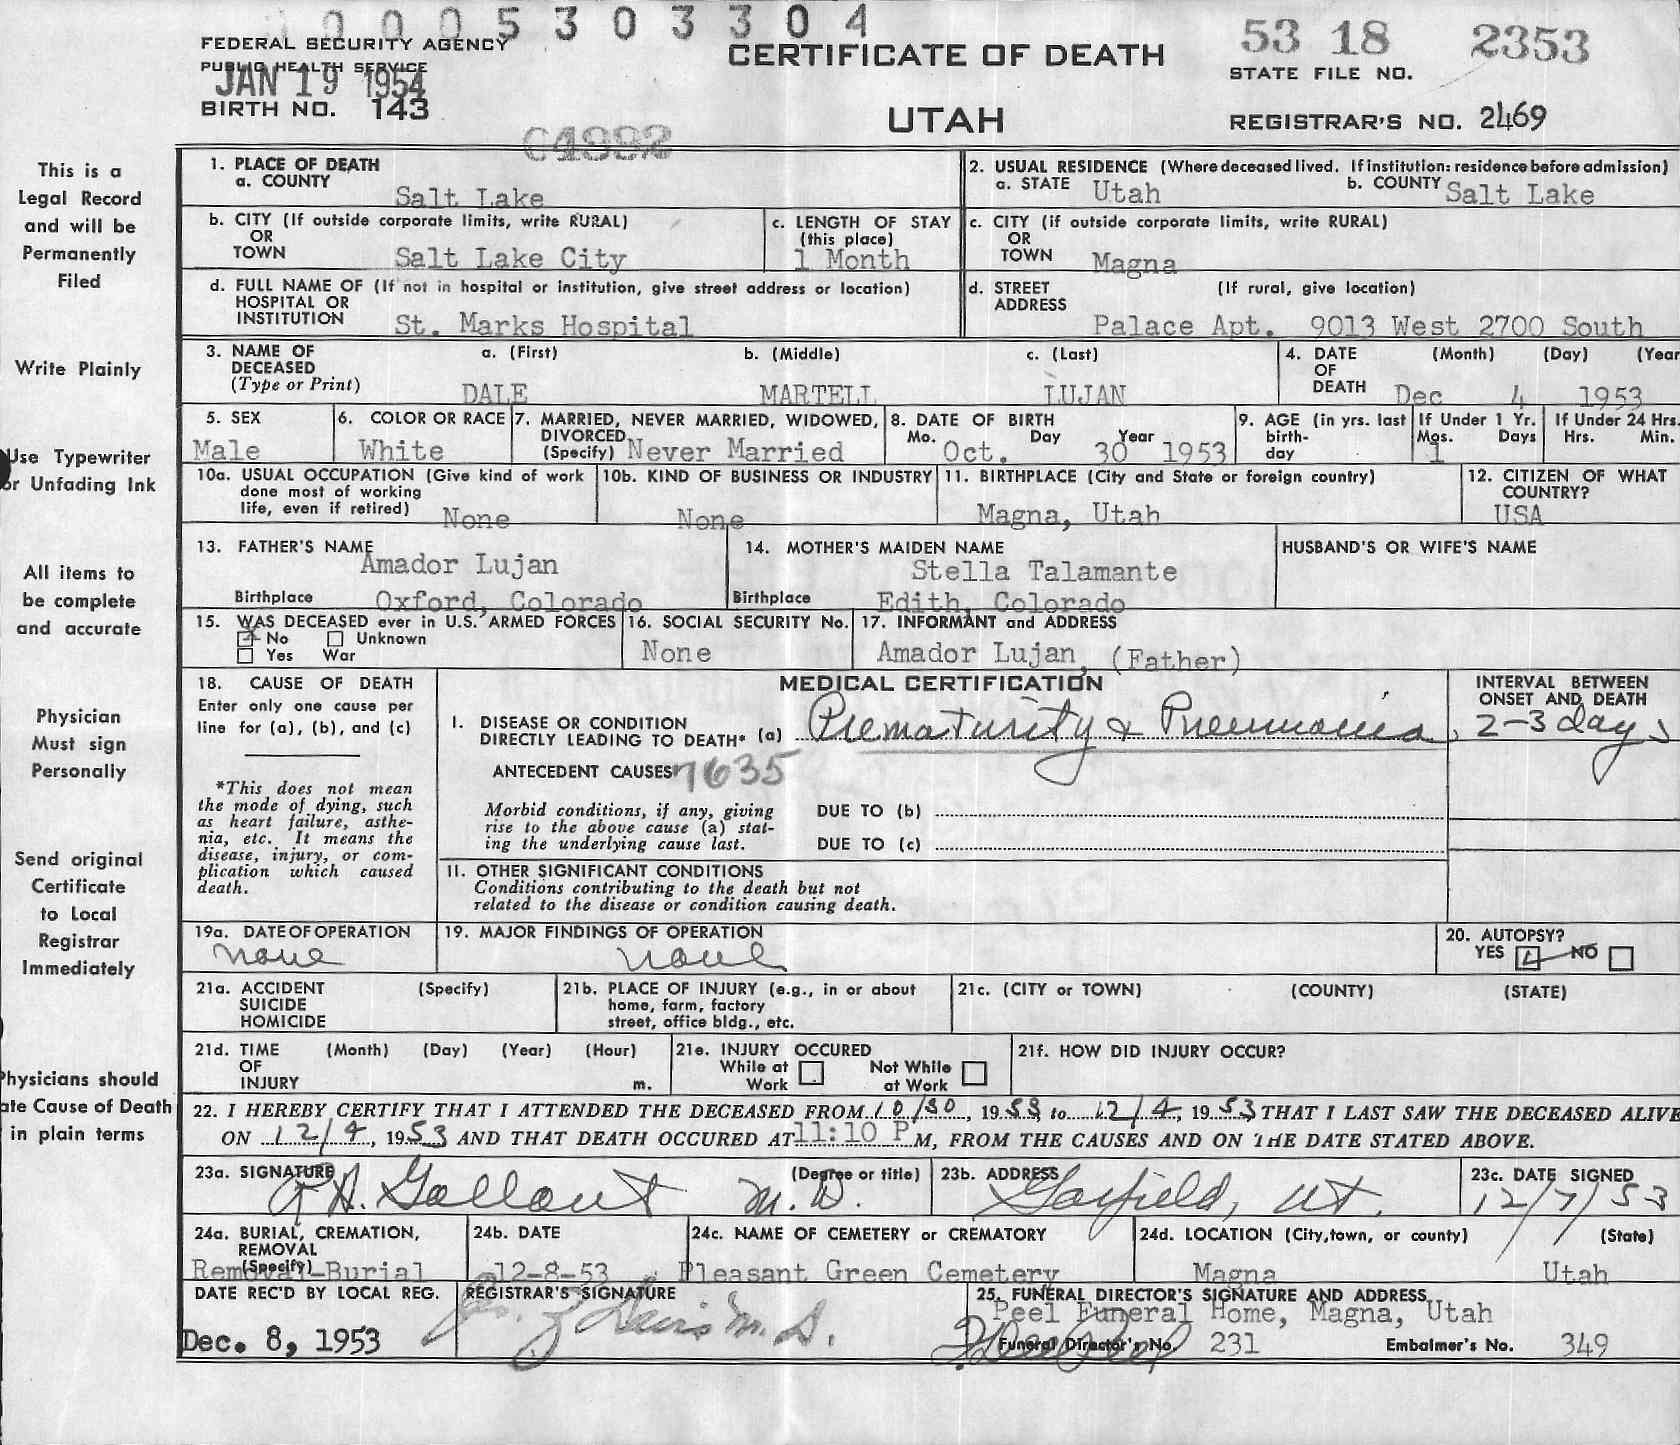 1 0 0 0 5 3 0 3 3 0 4
FEDERAL SECURITY AGENCY
PUBLIC HEALTH SERVICE
JAN 19 1954
BIRTH NO. 143
CERTIFICATE OF DEATH
UTAH
53 18 2353
STATE FILE NO.
REGISTRAR'S NO. 2469
This is a
Legal Record
and will be
Permanently
Filed
Write Plainly
Use Typewriter
or Unfading Ink
All items to
be complete
and accurate
Physician
Must sign
Personally
Send original
Certificate
to Local
Registrar
Immediately
Physicians should
ate Cause of Death
in plain terms
1. PLACE OF DEATH
a. COUNTY
Salt Lake
2. USUAL RESIDENCE (Where deceased lived. If institution: residence before admission)
a. STATE Utah b. COUNTY Salt Lake
b. CITY (If outside corporate limits, write RURAL)
OR
TOWN Salt Lake City
c. LENGTH OF STAY
(this place)
1 Month
c. CITY (if outside corporate limits, write RURAL)
OR
TOWN Magna
d. FULL NAME OF (If not in hospital or institution, give street address or location)
HOSPITAL OR
INSTITUTION St. Marks Hospital
d. STREET (If rural, give location)
ADDRESS
Palace Apt. 9013 West 2700 South
3. NAME OF DECEASED
(Type or Print)
a. (First) b. (Middle) c. (Last)
DALE MARTELL LUJAN
4. DATE OF DEATH (Month) (Day) (Year
Dec 4 1953
5. SEX
Male
6. COLOR OR RACE
White
7. MARRIED, NEVER MARRIED, WIDOWED,
DIVORCED
(Specify) Never Married
8. DATE OF BIRTH
Mo. Day Year
Oct. 30 1953
9. AGE (in yrs. last birth-day
If Under 1 Yr.
Mos. Days
1
If Under 24 Hrs.
Hrs. Min.
10a. USUAL OCCUPATION (Give kind of work
done most of working
life, even if retired) None
10b. KIND OF BUSINESS OR INDUSTRY
None
11. BIRTHPLACE (City and State or foreign country)
Magna, Utah
12. CITIZEN OF WHAT
COUNTRY?
USA
13. FATHER'S NAME
Amador Lujan
Birthplace Oxford, Colorado
14. MOTHER'S MAIDEN NAME
Stella Talamante
Birthplace Edith, Colorado
HUSBAND'S OR WIFE'S NAME
15. WAS DECEASED ever in U.S. ARMED FORCES
No Unknown
Yes War
16. SOCIAL SECURITY No.
None
17. INFORMANT and ADDRESS
Amador Lujan, (Father)
18. CAUSE OF DEATH
Enter only one cause per
line for (a), (b), and (c)
*This does not mean
the mode of dying, such
as heart failure, asthe-
nia, etc. It means the
disease, injury, or com-
plication which caused
death.
MEDICAL CERTIFICATION
I. DISEASE OR CONDITION
DIRECTLY LEADING TO DEATH* (a) Prematurity & Pneumonia
ANTECEDENT CAUSES 7635
Morbid conditions, if any, giving
rise to the above cause (a) stat-
ing the underlying cause last.
DUE TO (b)
DUE TO (c)
INTERVAL BETWEEN
ONSET AND DEATH
2-3 days
11. OTHER SIGNIFICANT CONDITIONS
Conditions contributing to the death but not
related to the disease or condition causing death.
19a. DATE OF OPERATION
none
19. MAJOR FINDINGS OF OPERATION
none
20. AUTOPSY?
YES NO
21a. ACCIDENT (Specify)
SUICIDE
HOMICIDE
21b. PLACE OF INJURY (e.g., in or about
home, farm, factory
street, office bldg., etc.
21c. (CITY or TOWN) (COUNTY) (STATE)
21d. TIME (Month) (Day) (Year) (Hour)
OF
INJURY m.
21e. INJURY OCCURED
While at Work
Not While at Work
21f. HOW DID INJURY OCCUR?
22. I HEREBY CERTIFY THAT I ATTENDED THE DECEASED FROM 10/30, 1953 to 12/4, 1953 THAT I LAST SAW THE DECEASED ALIVE
ON 12/4, 1953 AND THAT DEATH OCCURED AT 11:10 P M, FROM THE CAUSES AND ON THE DATE STATED ABOVE.
23a. SIGNATURE (Degree or title)
Gallant M.D.
23b. ADDRESS
Garfield, Ut.
23c. DATE SIGNED
12/7/53
24a. BURIAL, CREMATION,
REMOVAL
(Specify)
Removal-Burial
24b. DATE
12-8-53
24c. NAME OF CEMETERY or CREMATORY
Pleasant Green Cemetery
24d. LOCATION (City, town, or county) (State)
Magna Utah
DATE REC'D BY LOCAL REG.
Dec. 8, 1953
REGISTRAR'S SIGNATURE
M.D.
25. FUNERAL DIRECTOR'S SIGNATURE AND ADDRESS
Peel Funeral Home, Magna, Utah
Funeral Director's No. 231 Embalmer's No. 349